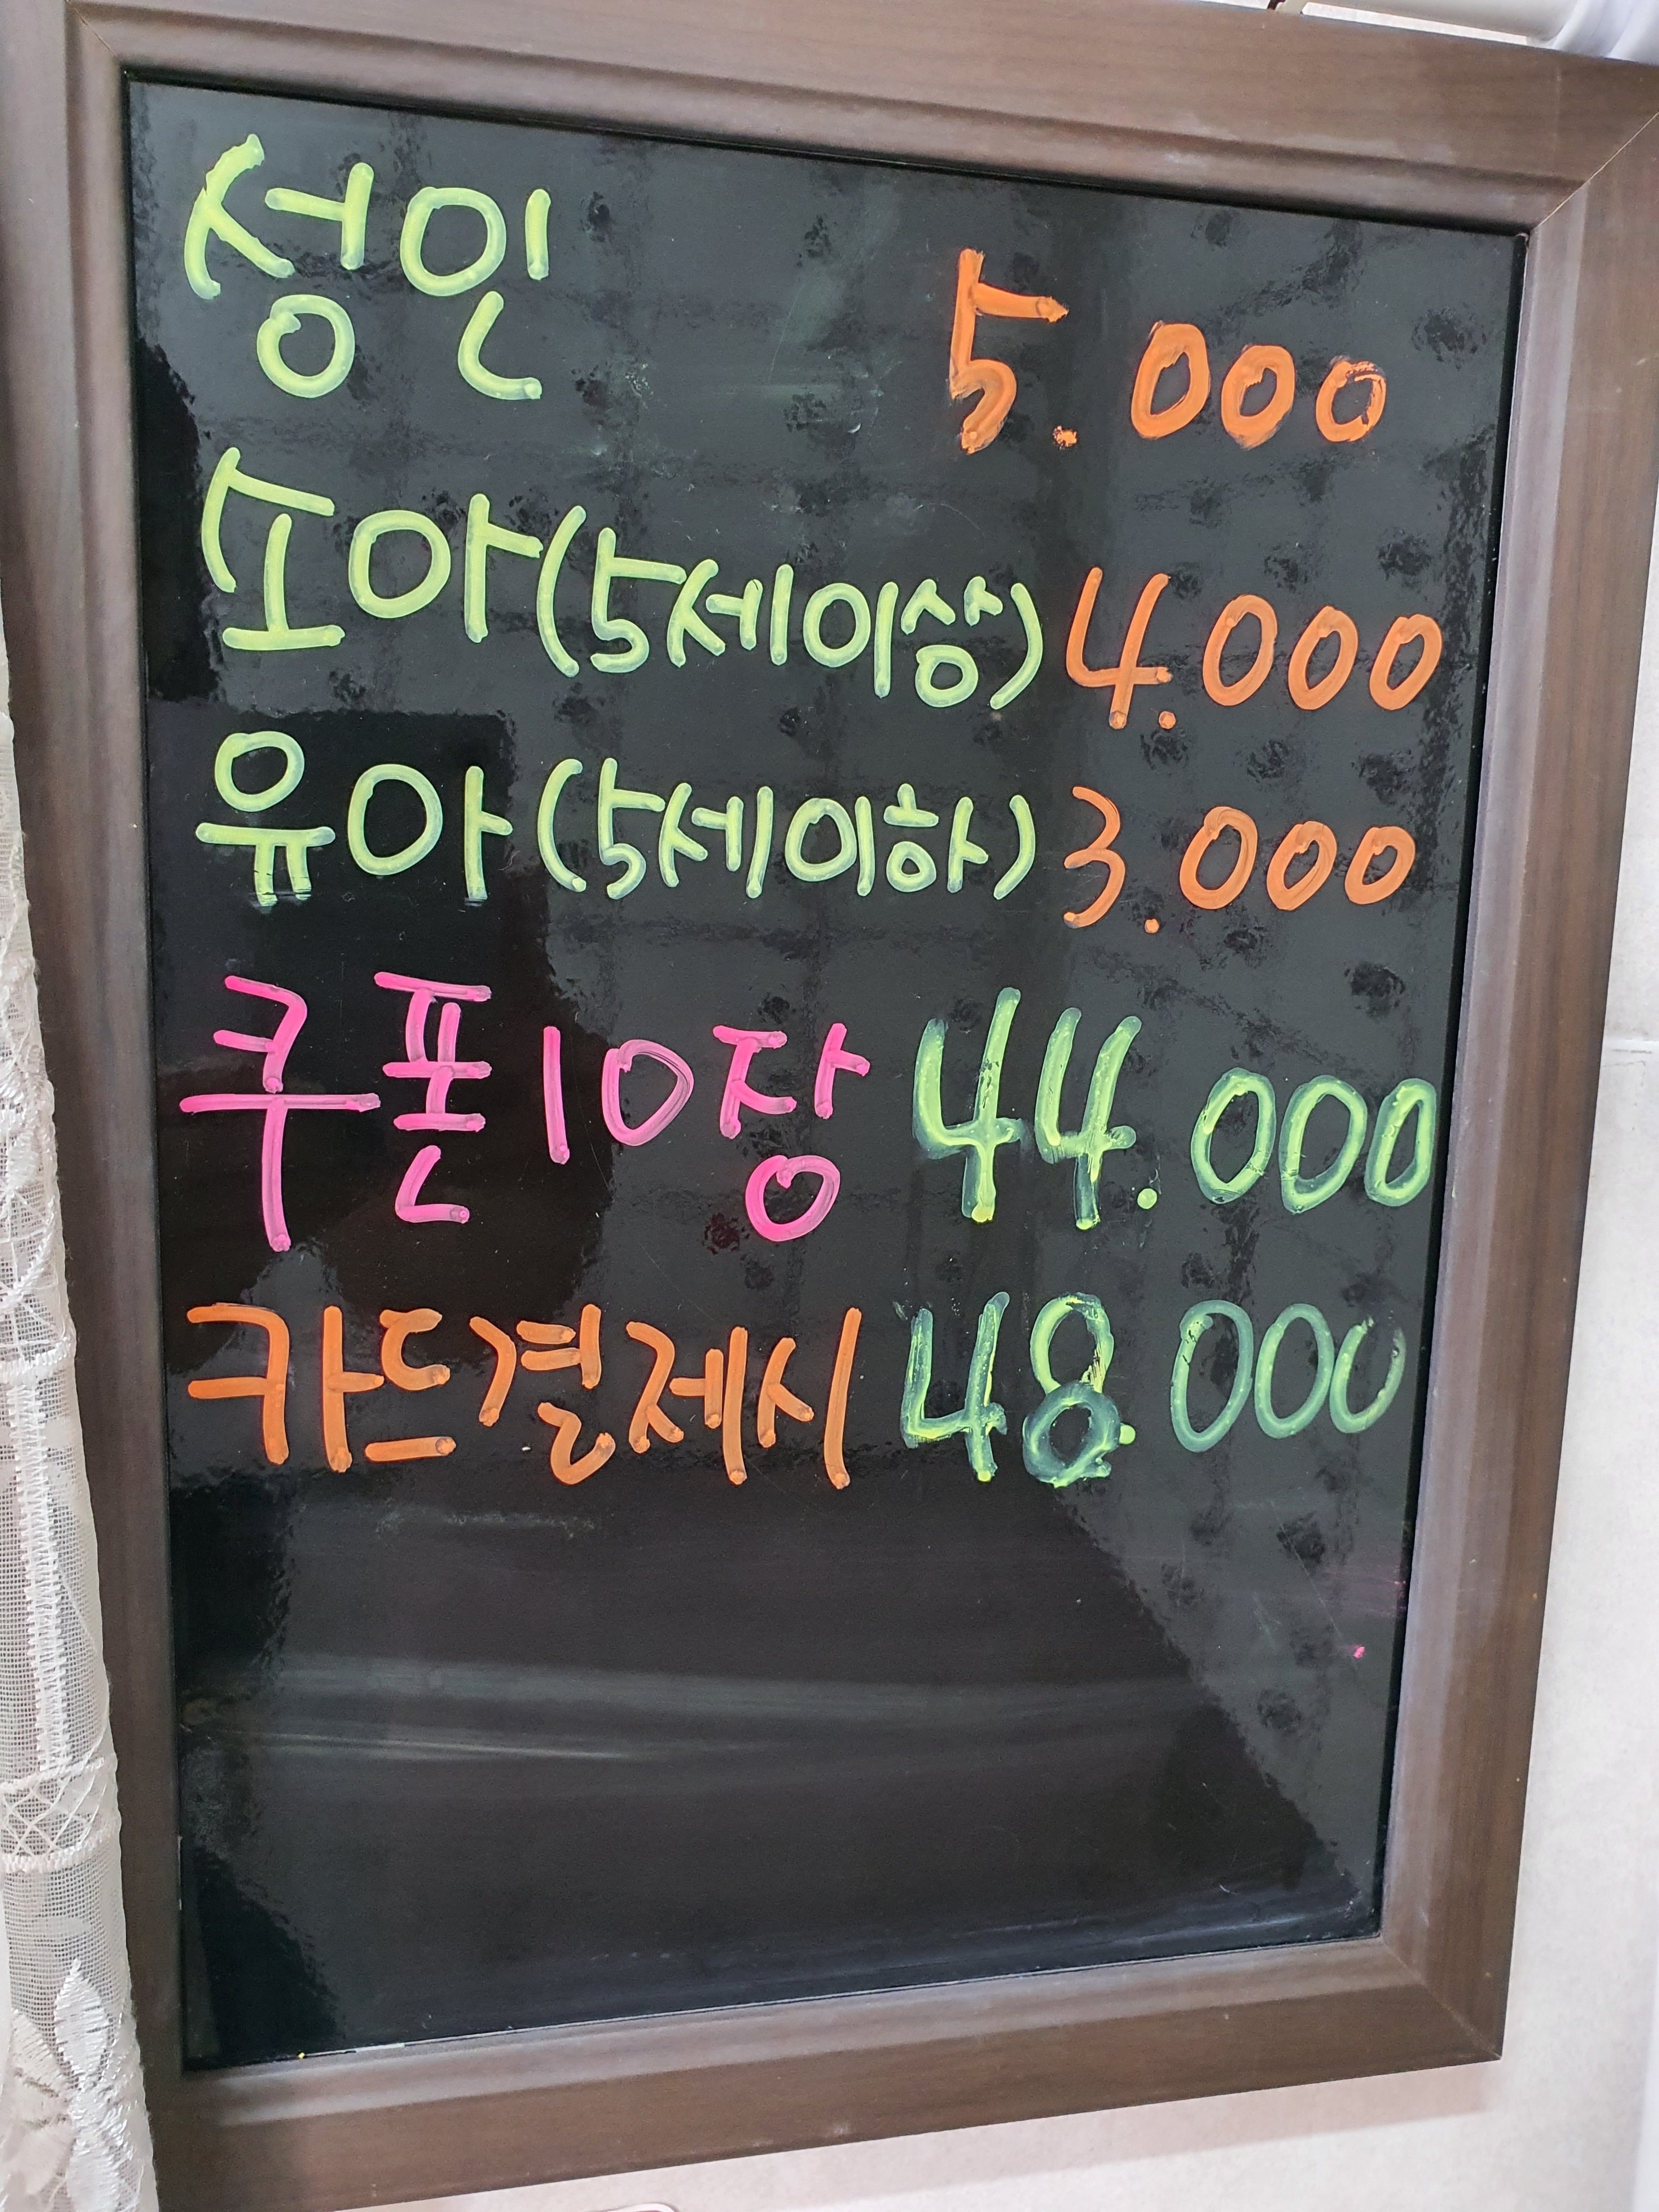 성인 5.000
소아(5세이상) 4.000
유아(5세이하) 3.000
쿠폰10장 44.000
카드결제시 48.000